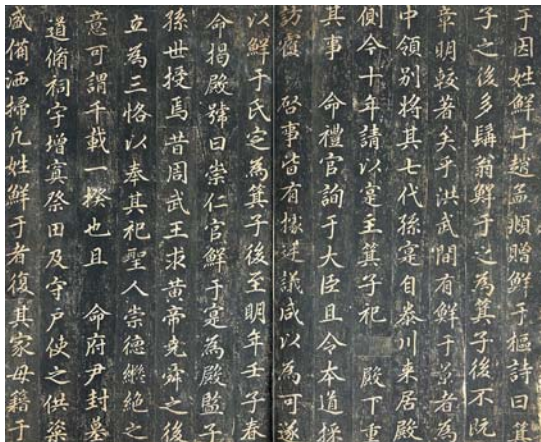 于因姓鮮于趙孟頫贈鮮于樞詩曰箕
子之後多髯翁鮮于之為箕子後不旣
章明較著矣乎洪武間有鮮于景者為
中領別將其七代孫寔自泰川来居殿
側今十年請以寔主箕子祀 殿下重
其事 命禮官詢于大臣且令本道採
訪覈 啓事皆有據廷議咸以為可遂
以鮮于氏定為箕子後至明年壬子春
命揭殿號曰崇仁官鮮于寔為殿監子
孫世授焉昔周武王求黄帝堯舜之後
立為三恪以奉其祀聖人崇德繼絶之
意可謂千載一揆也且 命府尹封墓
道脩祠宇增寘祭田及守戶使之供粢
盛備洒掃凡姓鮮于者復其家毋籍于